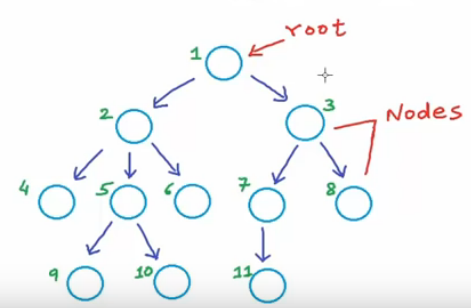 root
1
2
3
Nodes
4
5
6
7
8
9
10
11